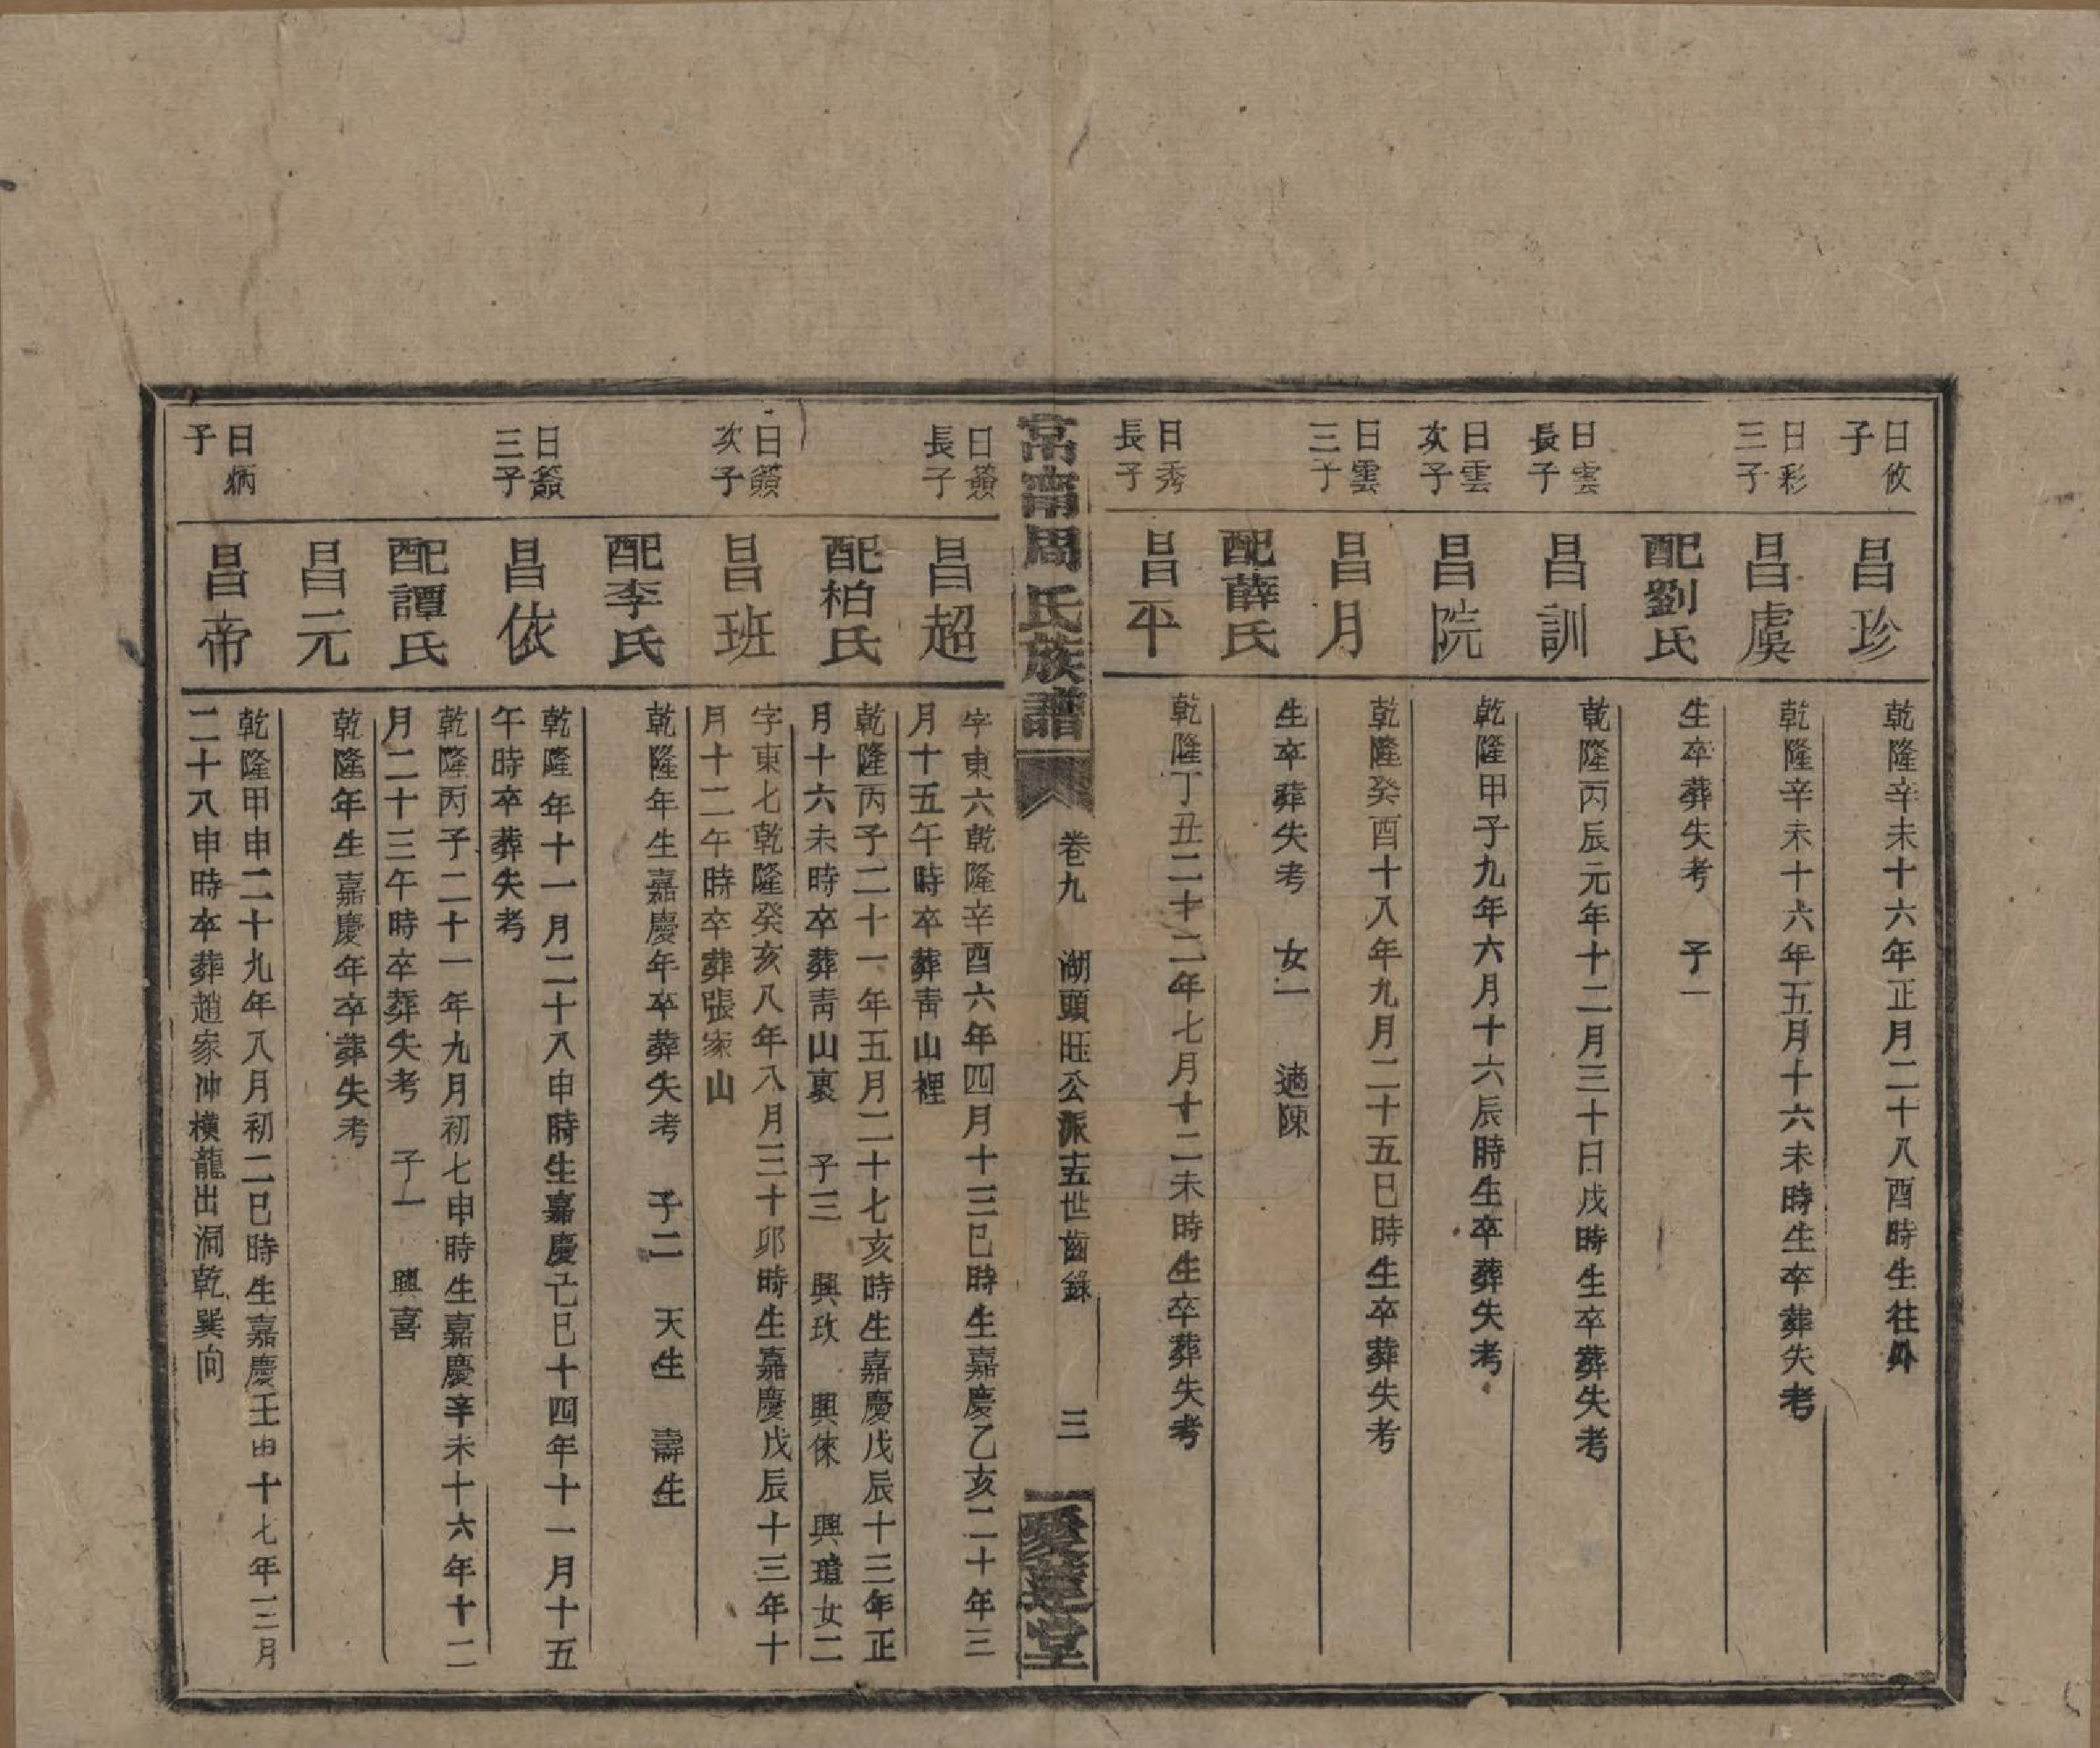 日攸子
昌珍
乾隆辛未十六年正月二十八酉時生往外
日彩三子
昌虞
乾隆辛未十六年五月十六未時生卒葬失考
配劉氏
生卒葬失考 子一
日雲長子
昌訓
乾隆丙辰元年十二月三十日戌時生卒葬失考
日雲次子
昌院
乾隆甲子九年六月十六辰時生卒葬失考
日雲三子
昌月
乾隆癸酉十八年九月二十五巳時生卒葬失考
配薛氏
生卒葬失考 女一 適陳
日秀長子
昌平
乾隆丁丑二十二年七月十二未時生卒葬失考
常甯周氏族譜 卷九 湖頭旺公派十五世齒錄 三 愛蓮堂
日籫長子
昌超
字東六乾隆辛酉六年四月十三巳時生嘉慶乙亥二十年三
月十五午時卒葬靑山裡
配柏氏
乾隆丙子二十一年五月二十七亥時生嘉慶戊辰十三年正
月十六未時卒葬靑山裏 子三 興玫 興倈 興瑄女二
日籫次子
昌班
字東七乾隆癸亥八年八月三十卯時生嘉慶戊辰十三年十
月十二午時卒葬張家山
配李氏
乾隆年生嘉慶年卒葬失考 子二 天生 壽生
日籫三子
昌依
乾隆年十一月二十八申時生嘉慶己巳十四年十一月十五
午時卒葬失考
配譚氏
乾隆丙子二十一年九月初七申時生嘉慶辛未十六年十二
月二十三午時卒葬失考 子一 興喜
昌元
乾隆年生嘉慶年卒葬失考
日炳子
昌帝
乾隆甲申二十九年八月初二巳時生嘉慶壬申十七年三月
二十八申時卒葬趙家冲橫龍出洞乾巽向